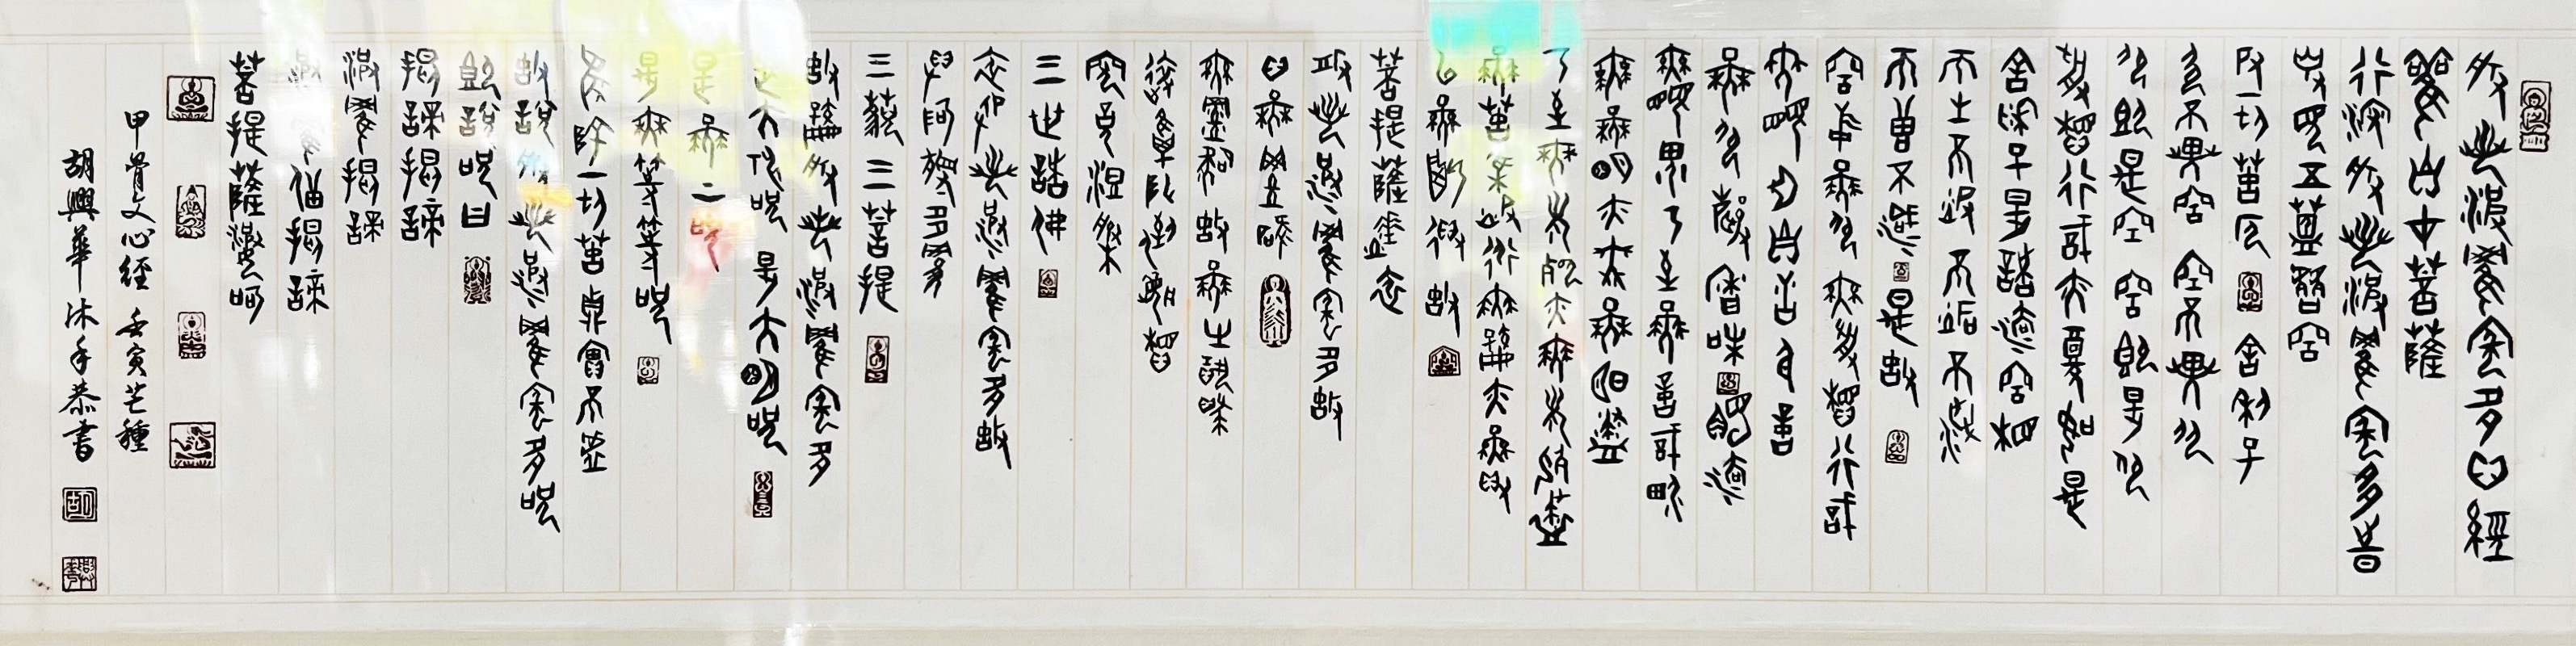 般若波羅蜜多心經
觀自在菩薩
行深般若波羅蜜多時
照見五蘊皆空
度一切苦厄 舍利子
色不異空 空不異色
色即是空 空即是色
受想行識亦復如是
舍利子是諸法空相
不生不滅 不垢不淨
不增不減 是故
空中無色 無受想行識
無眼耳鼻舌身意
無色聲香味 觸法
無眼界乃至無意識界
無無明亦無無明盡
乃至無老死亦無老死盡
無苦集滅道無智亦無得
以無所得故
菩提薩埵依
般若波羅蜜多故
心無罣礙
無罣礙故無有恐怖
遠離顛倒夢想
究竟涅槃
三世諸佛
依般若波羅蜜多故
得阿耨多羅
三藐三菩提
故知般若波羅蜜多
是大神咒 是大明咒
是無上咒
是無等等咒
能除一切苦真實不虛
故說般若波羅蜜多咒
即說咒曰
揭諦揭諦
波羅揭諦
波羅僧揭諦
菩提薩婆訶
甲骨文心經 壬寅芒種
胡興華沐手恭書